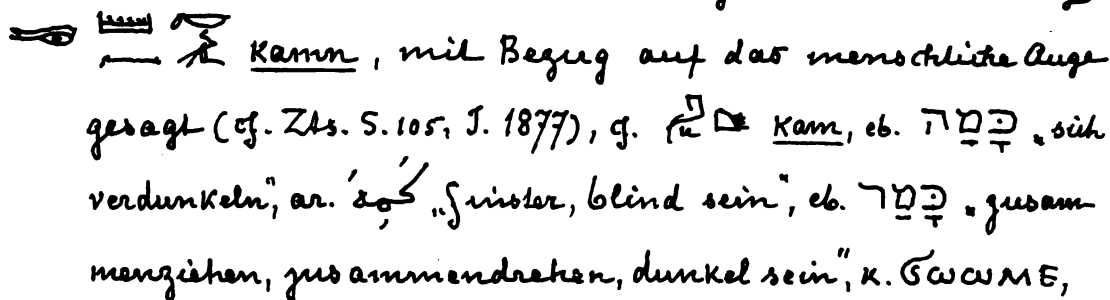 kamn, mit Bezug auf das menschliche Auge
gesagt (cf. Zts. S. 105, J. 1877), cf. kam, eb. כָּמַה „sich
verdunkeln", ar. „finster, blind sein", eb. כָּמַר „zusam-
menziehen, zusammendrehen, dunkel sein", K. ϬⲰⲰⲘⲈ,